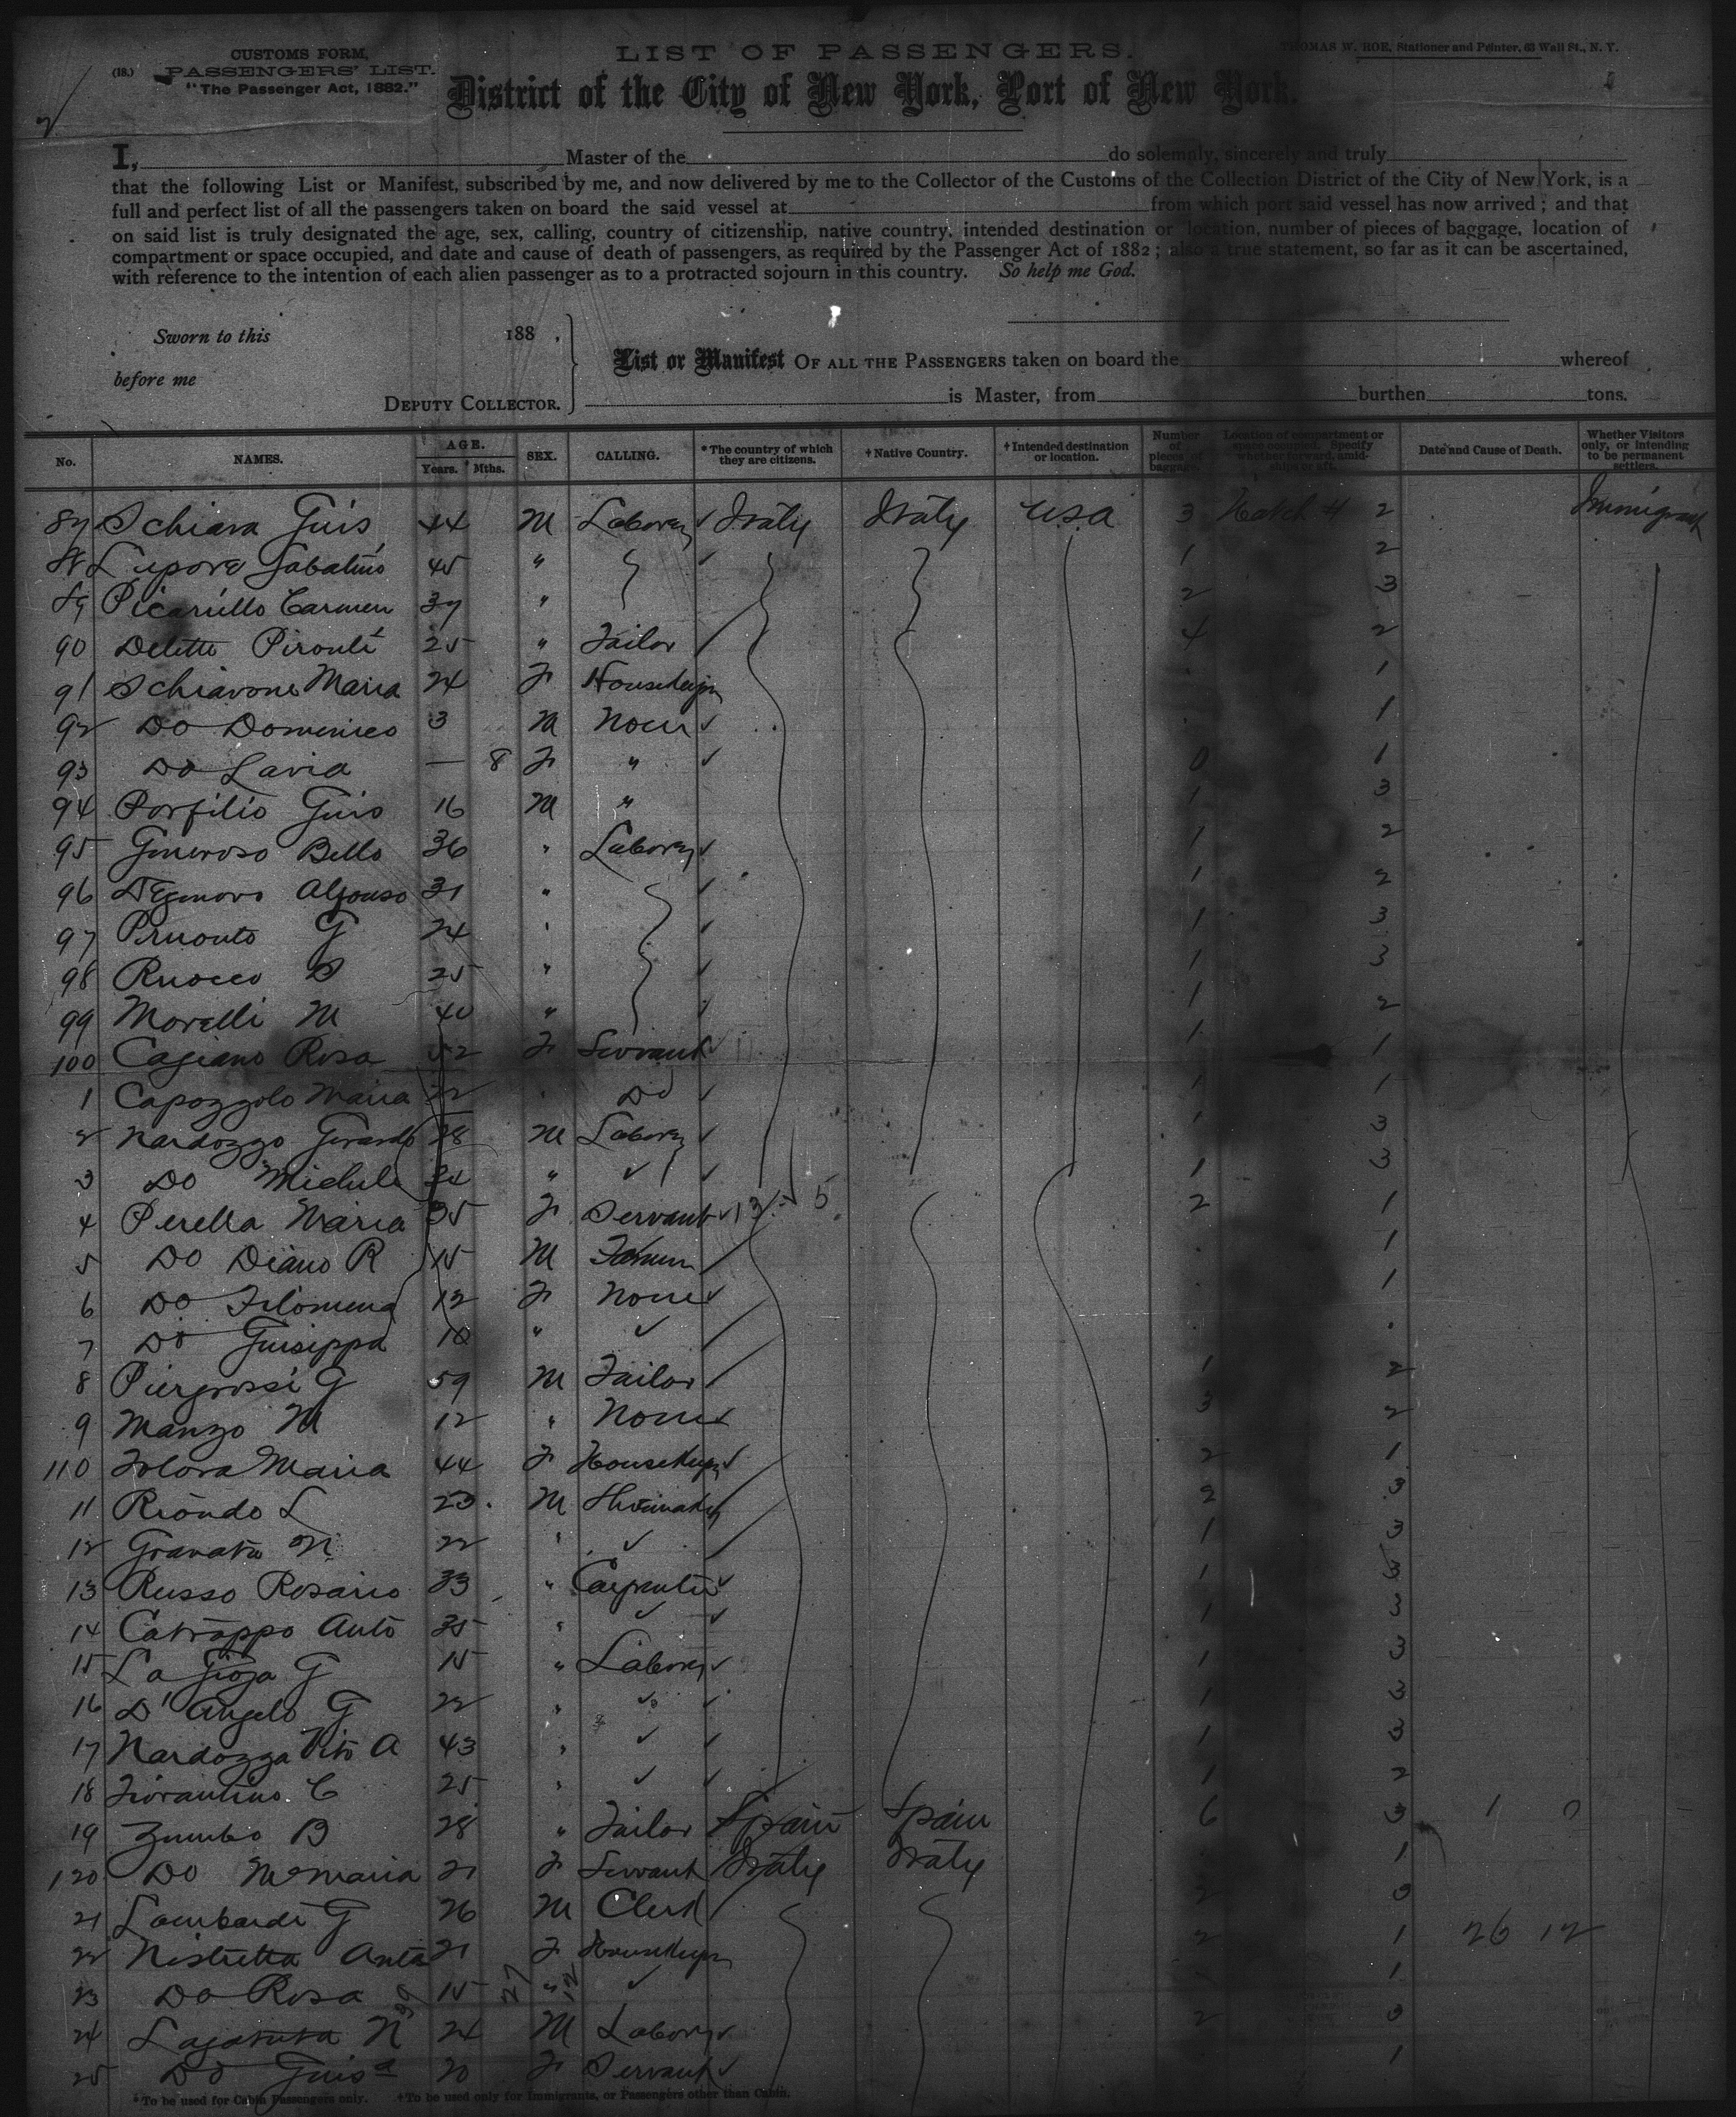 CUSTOMS FORM,
(18.) PASSENGERS' LIST.
"The Passenger Act, 1882."
LIST OF PASSENGERS.
THOMAS W. ROE, Stationer and Printer, 63 Wall St., N. Y.
District of the City of New York, Port of New York.
I, Master of the do solemnly, sincerely and truly
that the following List or Manifest, subscribed by me, and now delivered by me to the Collector of the Customs of the Collection District of the City of New York, is a
full and perfect list of all the passengers taken on board the said vessel at from which port said vessel has now arrived; and that
on said list is truly designated the age, sex, calling, country of citizenship, native country, intended destination or location, number of pieces of baggage, location of
compartment or space occupied, and date and cause of death of passengers, as required by the Passenger Act of 1882; also a true statement, so far as it can be ascertained,
with reference to the intention of each alien passenger as to a protracted sojourn in this country. So help me God.
Sworn to this 188 .
before me
DEPUTY COLLECTOR.
List or Manifest OF ALL THE PASSENGERS taken on board the whereof
is Master, from burthen tons.
No. NAMES. AGE. Years. Mths. SEX. CALLING. *The country of which they are citizens. †Native Country. †Intended destination or location. Number of pieces of baggage. Location of compartment or space occupied. Specify whether forward, amidships or aft. Date and Cause of Death. Whether Visitors only, or intending to be permanent settlers.
87 Schiava Guis 44 M Laborer Italy Italy USA 3 Hatch 4 2 Immigrant
88 Lepore Sabatino 45 " 1 2
89 Picarillo Carmen 37 " 2 3
90 Deletto 25 " Tailor 4 2
91 Schiavone Maria 24 F Housekeeper 1
92 Do Domenico 3 M None 1
93 Do Lavia — 8 F " 0 1
94 Porfilio Guis 16 M " 1 3
95 Generoso Bello 36 " Laborer 1 2
96 Alfonso 31 " 1 2
97 G 24 " 1 3
98 Ruocco 25 " 1 3
99 Morelli M 40 " 1 2
100 Cagiano Rosa 52 F Servant 1 1
1 Capozzolo Maria 22 " Do 1 1
2 Nardozzo Gerardo 28 M Laborer 1 3
3 Do Michele 34 " 1 3
4 Perella Maria 35 F Servant 2 1
5 Do Diano R 15 M 1
6 Do Filomena 12 F None 1
7 Do Guiseppa 10 "
8 Piergrossi G 59 M Tailor 1 2
9 Manzo M 12 " None 3 2
110 Maria 44 F Housekeeper 2 1
11 Riondo L 23 M Shoemaker 2 3
12 Granata N 22 " 1 3
13 Russo Rosario 33 " Carpenter 1 3
14 Catrappo Anto 35 " 1 3
15 La Gioja G 15 " Laborer 1 3
16 D'Angelo G 22 " 1 3
17 Nardozza Vito A 43 " 1 3
18 Fiorantino C 25 " 1 2
19 Zumbo B 28 " Tailor Spain Spain 6 3
120 Do Maria 21 F Servant Italy Italy 1
21 Lombardi G 26 M Clerk 2 3
22 Nistretta Anta 21 F Housekeeper 2 1 26 12
23 Do Rosa 15 " 1
24 N 24 M Laborer 2 3
25 Do Guisa 20 F Servant 1
*To be used for Cabin Passengers only. †To be used only for Immigrants, or Passengers other than Cabin.